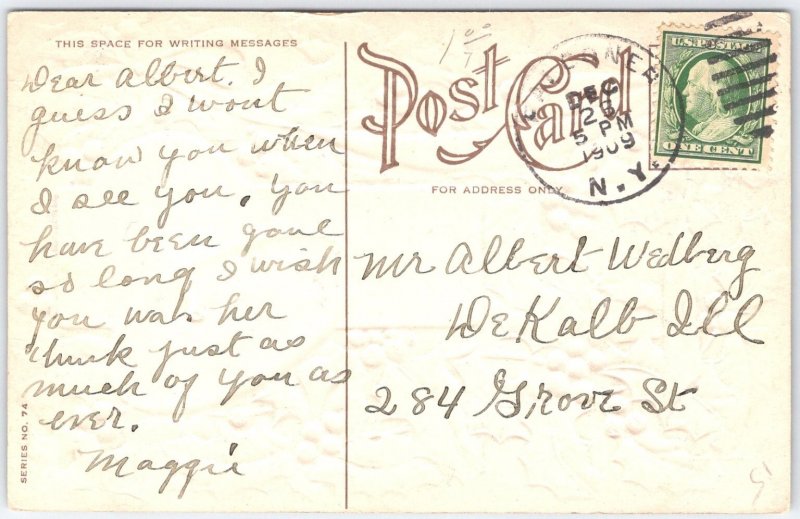 THIS SPACE FOR WRITING MESSAGES
Dear Albert. I
guess I wont
know you when
I see you. You
have been gone
so long I wish
you was her
think just as
much of you as
ever.
Maggie
SERIES NO. 74
Post Card
FOR ADDRESS ONLY
DEC
5 PM
1909
N.Y.
U.S. POSTAGE
ONE CENT
Mr Albert Wedberg
DeKalb Ill
284 Grove St